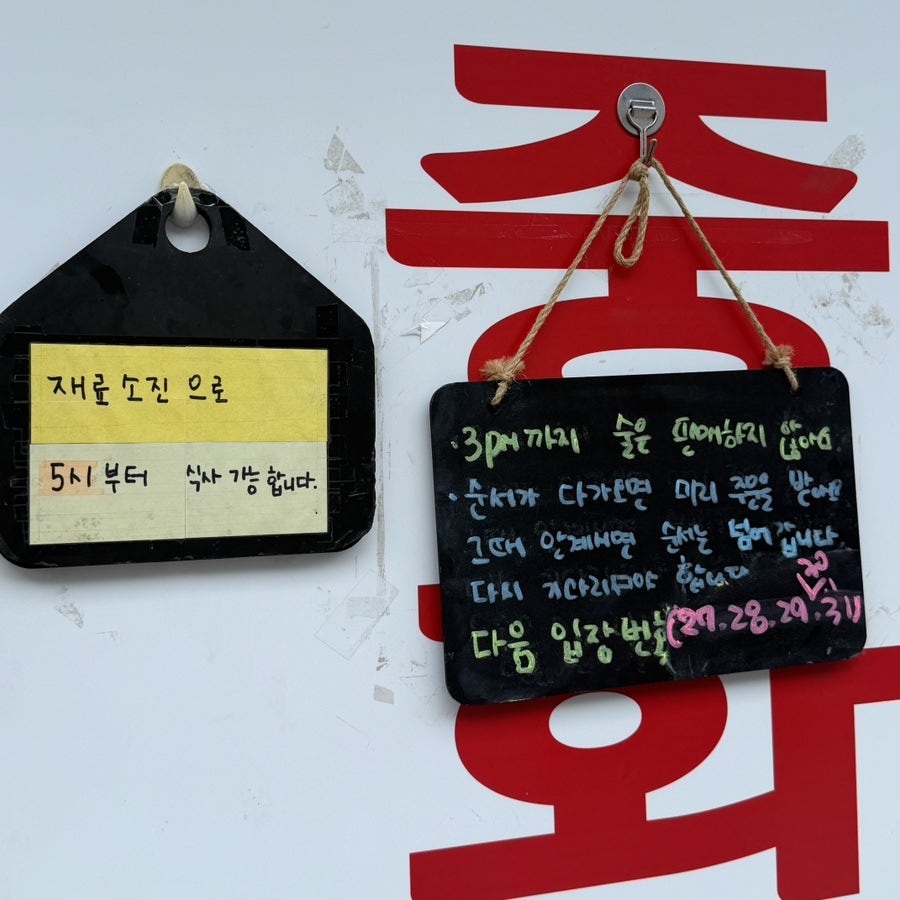 재료소진으로
5시부터 식사가능합니다.
·3pm까지 술은 판매하지 않아요
·순서가 다가오면 미리 주문을 받아요
그때 안계시면 순서는 넘어갑니다.
다시 기다리셔야 합니다
30
다음 입장번호(27.28.29.31)
중화